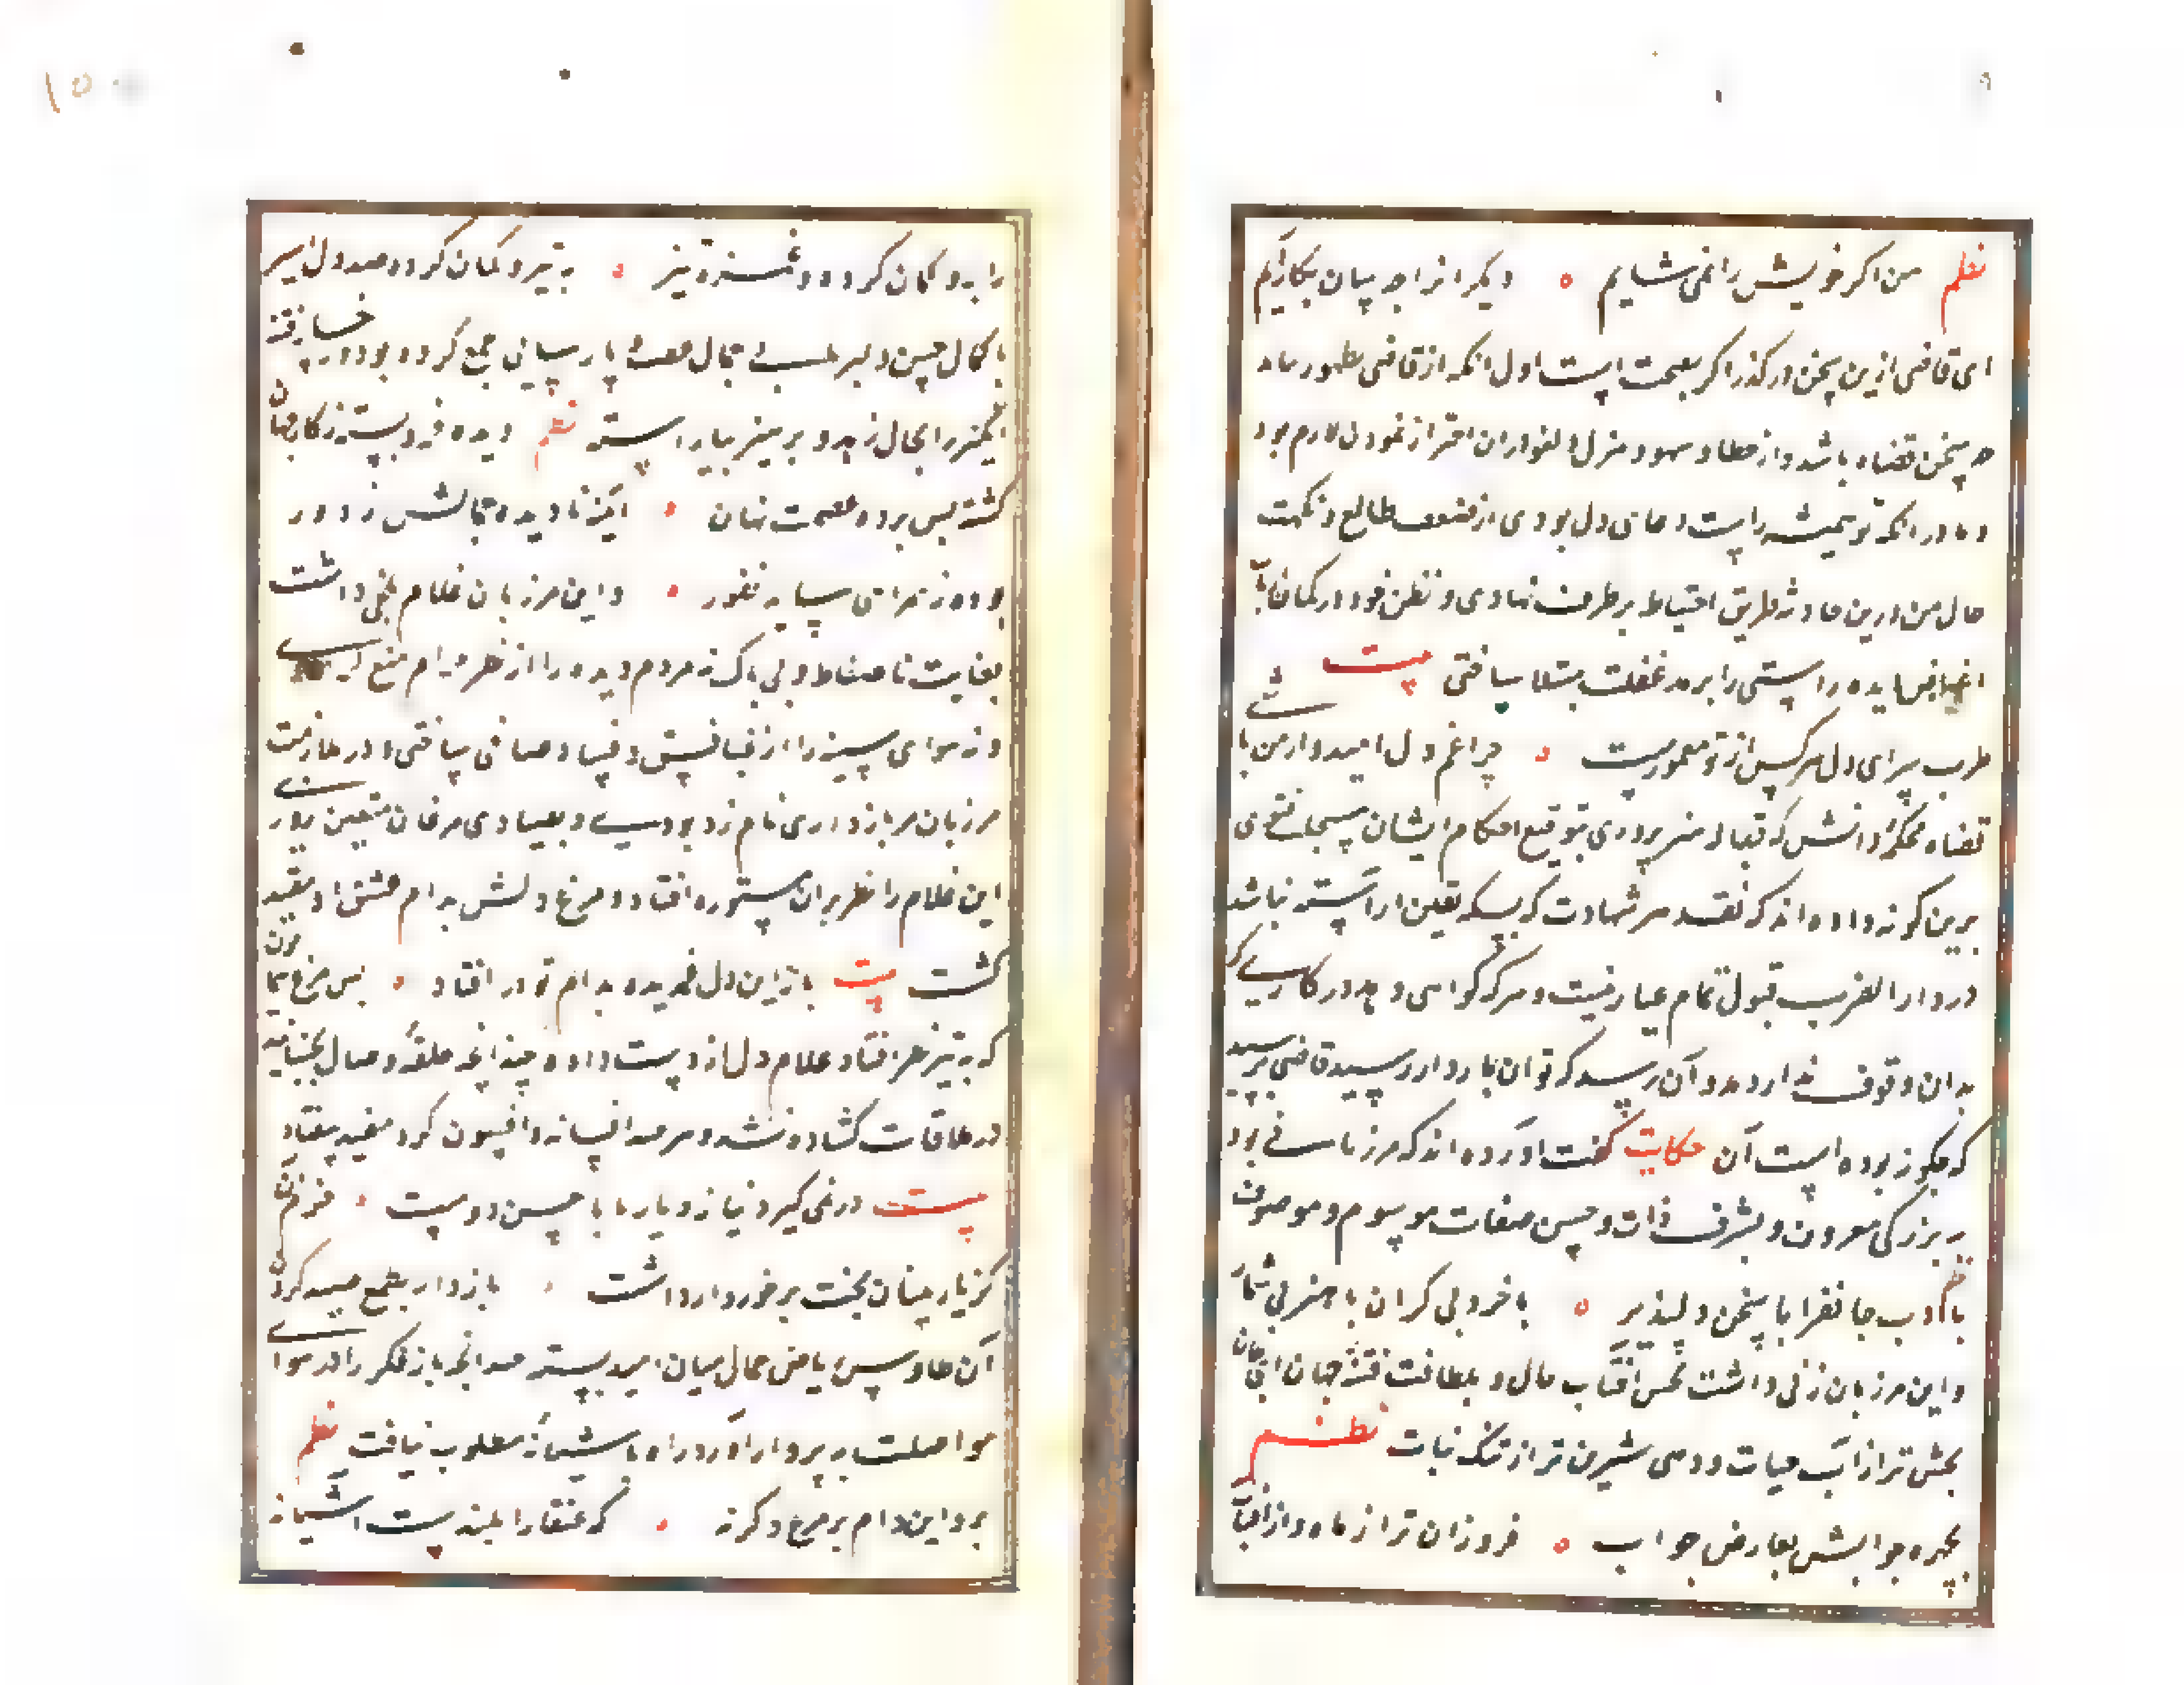 نظم من اکر خویش را نمی شایم ه دیکر انرا چه سان بکار ایم
ای قاضی ازین سخن درکذر اکر بصحت است اول انکه از قاضی
چه سخن قضاه باشد و از خطا و سهو و منزل احتراز نمودن لازم بود
و نادر انکه تو همیشه راست و صافی دل بودی از ضعف طالع و نکبت
حال من درین حادثه طریق احتیاط بر طرف نهادی و نظن خود در کمان
راستی را بر مد غفلت مبتلا ساختی بیت
طرب سرای دل هر کس از تو معمورست ه چرا غم دل امیدوار من باشی
قضاه محکمه دانش که قباله هنر پروری بتوقیع احکام ایشان مسجل است فتوی
برین کونه داده اند که نقد هر شهادت که بسکه یقین اراسته نباشد
در دار الضرب قبول تمام عیار نیست و هر که کواهی دهد در کاری که
بدان وقوف ندارد بدو آن رسد که بدان بازدار رسید قاضی پرسید
که چکونه بوده است آن حکایت کفت اورده اند که مرزبانی بود
به بزرکی معروف و بشرف ذات و حسن صفات موسوم و موصوف
نظم با ادب جانفزا با سخن دلپذیر ه با خرد بی کران با هنر بی شمار
و این مرزبان زنی داشت بحسن افتاب مال و بلطافت فتنه جهان
بخش تر از آب حیات و دمی شیرین تر از تنک نبات نظم
بچهره جوابش بعارض جو اب ه فروزان تر از ماه و از افتاب
را بدو کمان کرده و غمزه تیز ه به تیر و کمان کرده صد دل اسیر
با کمال حسن و دلبری جمال عفت پارسایی جمع کرده بود و رخسار فتنه
انکیز را بخال زهد و پرهیز بیاراسته نظم دیده فرو بسته ز کار جهان
کشته پس پرده عصمت نهان ه اینه نادیده جمالش ز دور
بوده ز همراهی سایه نفور ه و این مرزبان غلام بلخی داشت
بغایت ناحفاظ و بی باک نه مردم دیده را از نظر حرام منع کردی
و نه هوای سینه را از غبار فسق و فساد صافی ساختی و در ملازمت
مرزبان مر بازداری نامزد بودی و بصیادی مرغان متعین بود
این غلام را نظر بران مستوره افتاد و مرغ دلش بدام عشق او مقید
کشت بیت باز این دل غمدیده بدام تو در افتاد ه بس مرغ همایون
که به تیر نظر افتاد غلام دل از دست داده چندانچه حلقه وصال بجنبانید
در ملاقات کشاده نشد و هر چند افسانه و افسون کرد مفید نیفتاد
بیت در نمی کیرد نیاز و یار ما با حسن دوست ه خرم آن
کز یار چنان بخت برخوردار داشت ه بازدار بطمع صید کردن
آن طاوس ریاض جمال میان امید بسته چندانچه باز فکر را در هوای
مواصلت به پرواز اورد راه باشیانه مطلوب نیافت نظم
برو این دام بر مرغ دکر نه ه که عنقا را بلندست آشیانه